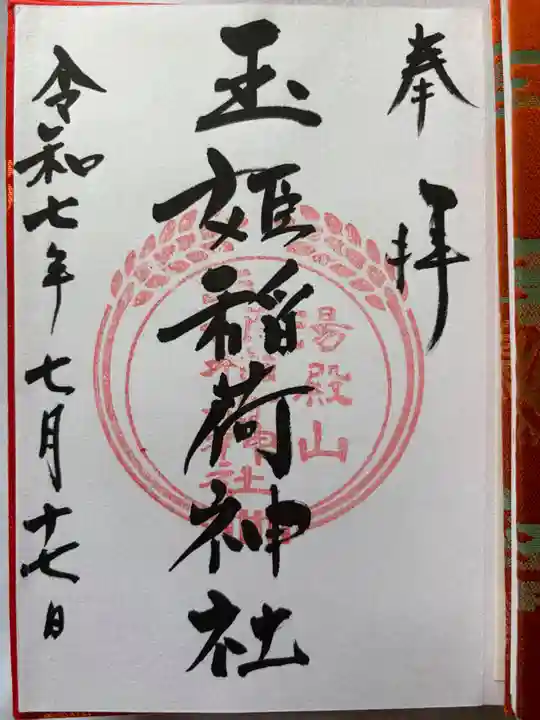 奉拝
玉姫稲荷神社
令和七年七月十七日
湯殿山
神社